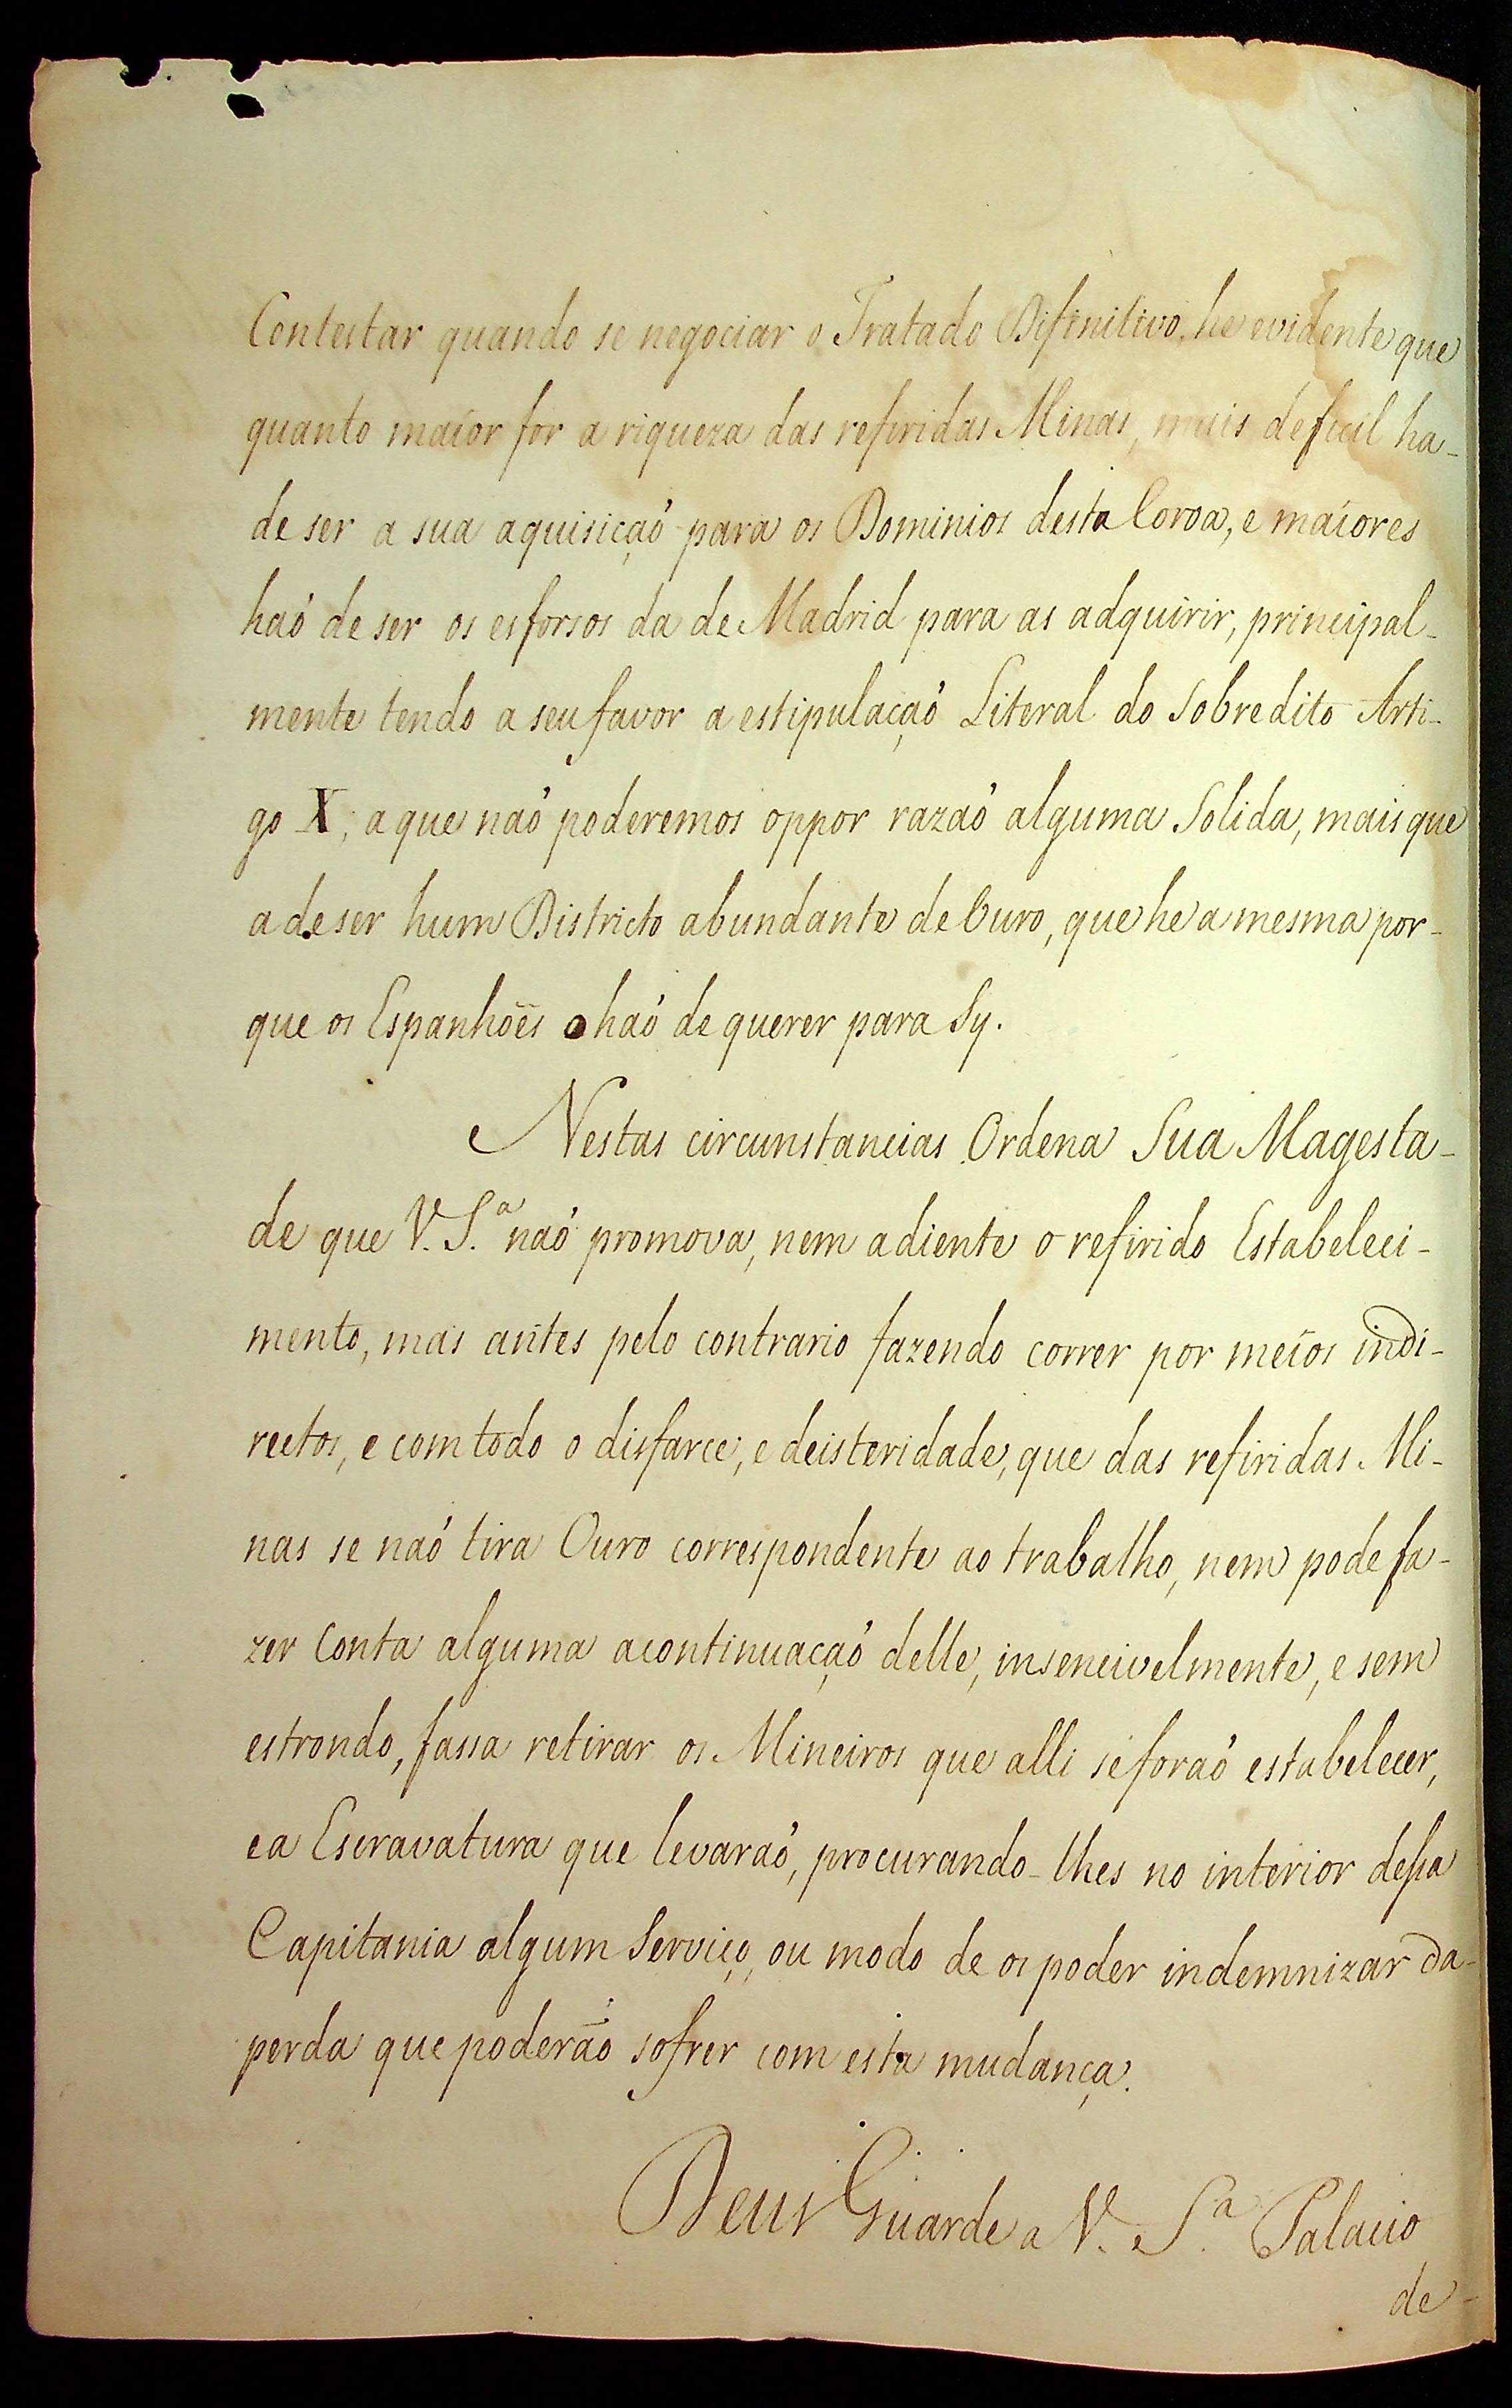 Contestar quando se negociar o Tratado Difinitivo, he evidente que
quanto maior for a riqueza das referidas Minas, mais deficil ha-
de ser a sua aquisicaõ para os Dominios desta Coroa, e maiores
haõ de ser os esforsos da de Madrid para as adquirir, principal-
mente tendo a seu favor a estipulaçaõ Literal do Sobredito Arti-
go X; a que naõ poderemos oppor razaõ alguma Solida, mais que
a de ser hum Districto abundante de Ouro, que he a mesma por-
que os Espanhoes o haõ de querer para Sy.
Nestas circunstancias Ordena Sua Magesta-
de que V. S.ª naõ promova, nem adiente o referido Estabeleci-
mento, mas antes pelo contrario fazendo correr por meios indi-
rectos, e com todo o disfarce, e deisteridade, que das referidas Mi-
nas se naõ tira Ouro correspondente ao trabalho, nem pode fa-
zer Conta alguma a continuaçaõ delle, insencivelmente, e sem
estrondo, fassa retirar os Mineiros que alli se foraõ estabelecer,
e a Escravatura que levaraõ, procurando-lhes no interior dessa
Capitania algum Serviço, ou modo de os poder indemnizar da-
perda que poderão sofrer com esta mudança.
Deus Guarde a V. S.ª Palacio
de-